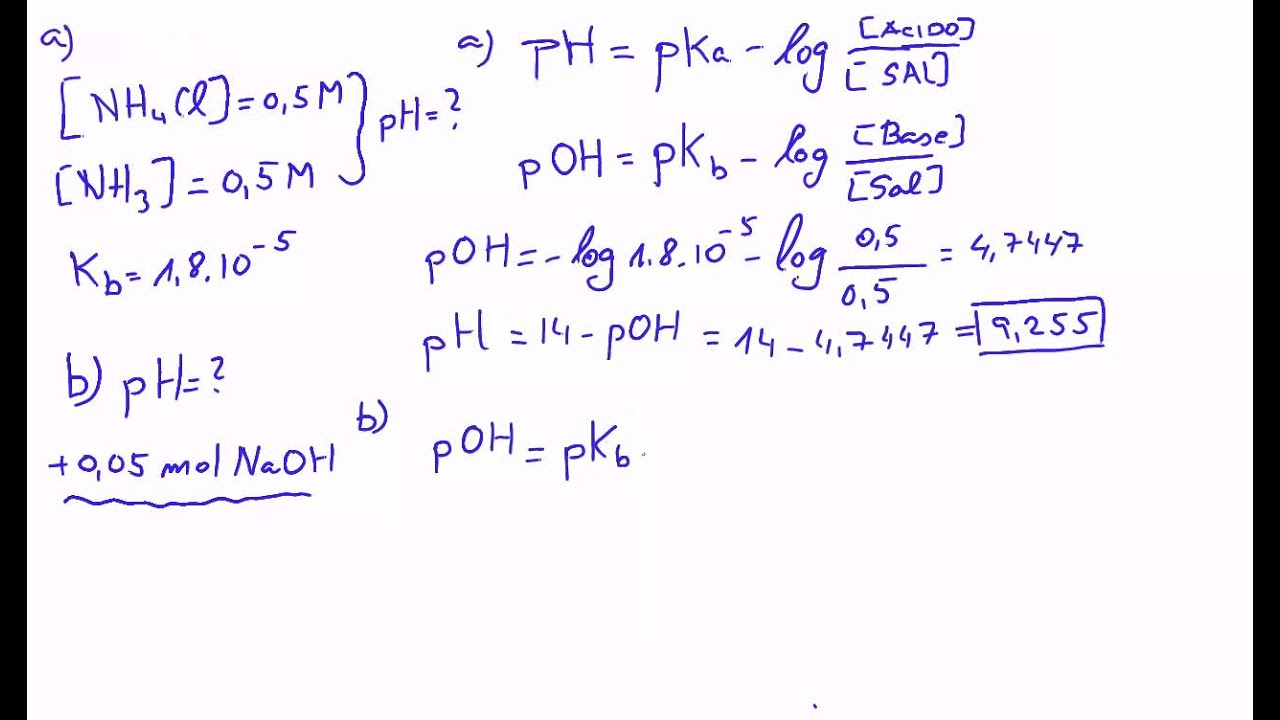 a)
[NH₄Cl] = 0,5 M
[NH₃] = 0,5 M
pH = ?
K_b = 1,8.10⁻⁵
b) pH = ?
+0,05 mol NaOH
a) pH = pKa - log [ACIDO]/[SAL]
pOH = pK_b - log [Base]/[Sal]
pOH = -log 1.8.10⁻⁵ - log 0,5/0,5 = 4,7447
pH = 14 - pOH = 14 - 4,7447 = 9,255
b) pOH = pK_b